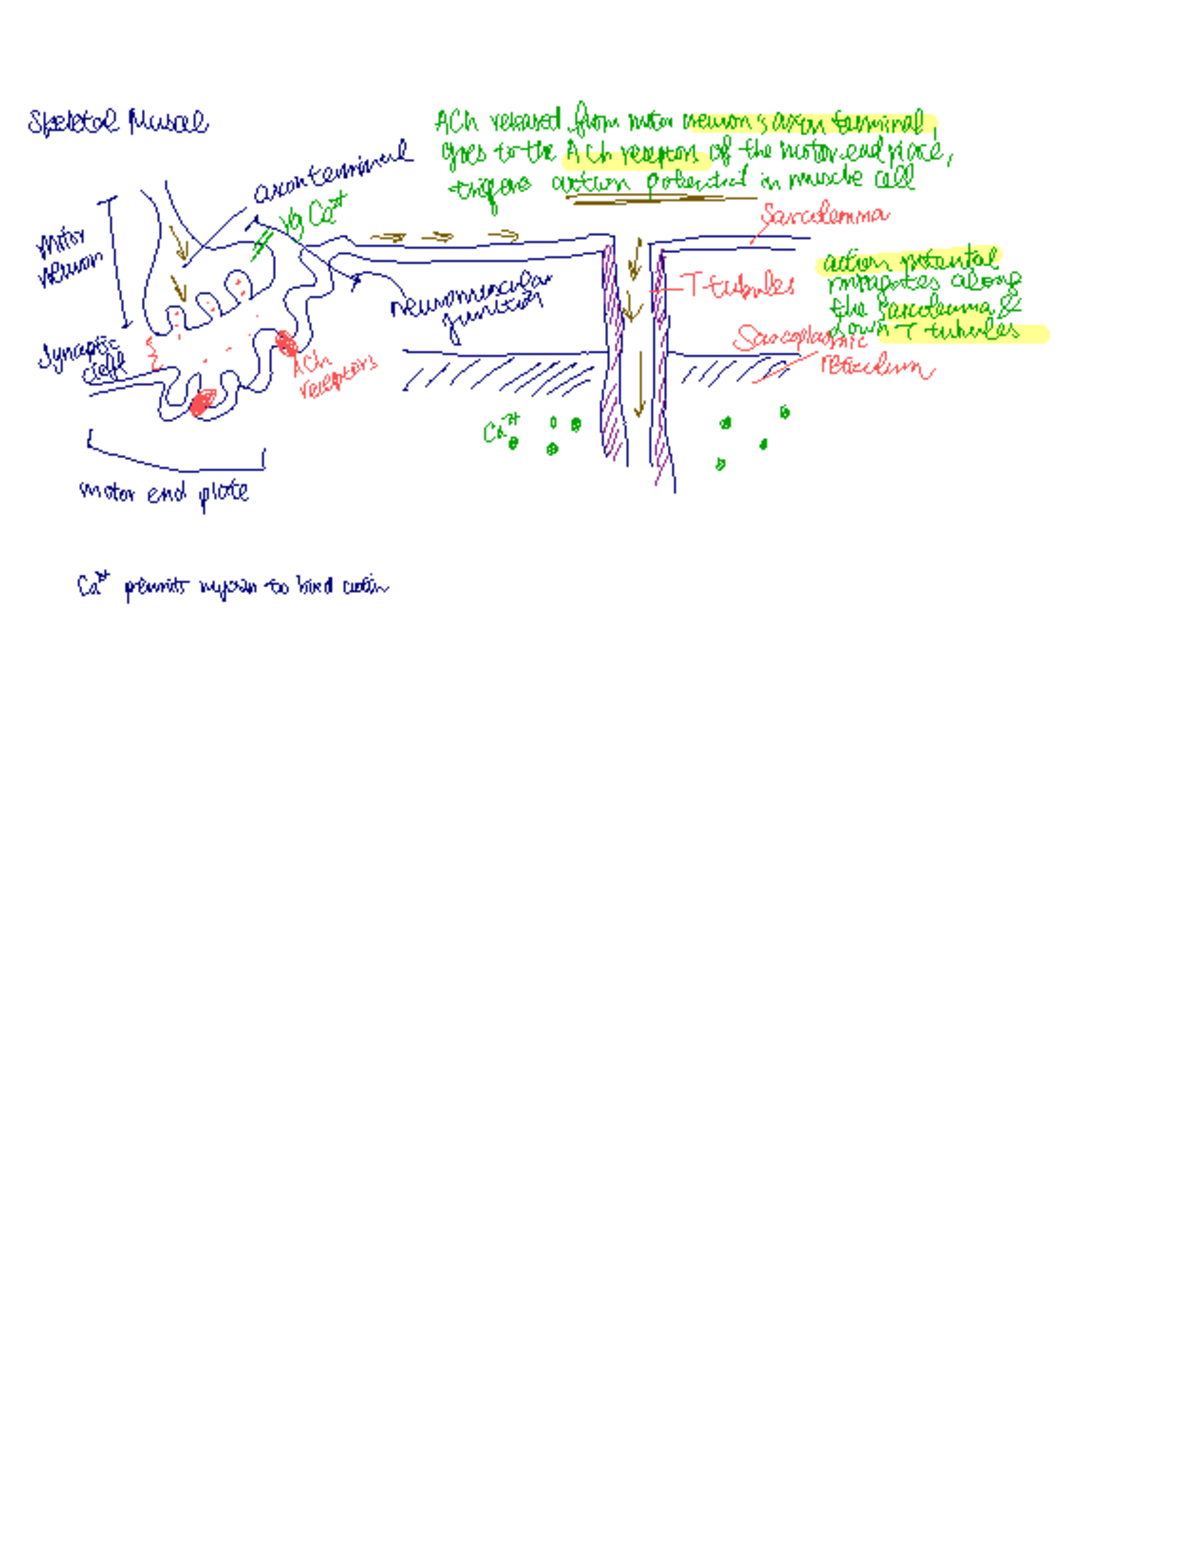 Skeletal Muscel
ACh released from motor neuron's axon terminal,
goes to the ACh receptors of the motor end place,
triggers action potential in muscle cell
axon terminal
vg Ca2+
motor
neuron
Sarcolemma
action potential
propagates along
the Sarcolemma &
down T tubules
T-tubules
neuromuscular
junction
Synaptic
cleft
ACh
receptors
Sarcoplasmic
reticulum
Ca2+
motor end plate
Ca2+ permits myosin to bind actin